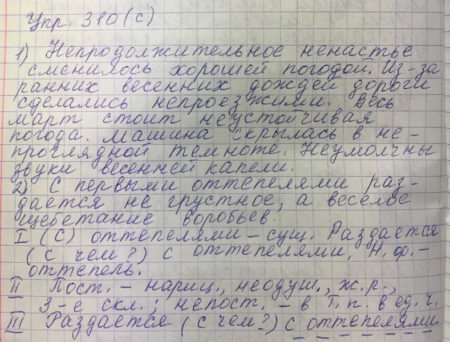 Упр. 380(с)
1) Непродолжительное ненастье
сменилось хорошей погодой. Из-за
ранних весенних дождей дороги
сделались непроезжими. Весь
март стоит неустойчивая
погода. Машина скрылась в не-
проглядной темноте. Неумолчны
звуки весенней капели.
2) С первыми оттепелями раз-
дается не грустное, а веселое
щебетание воробьев.
I (С) оттепелями – сущ. Раздается
(с чем?) с оттепелями. Н.ф. –
оттепель.
II Пост. – нариц., неодуш., ж.р.,
3-е скл.; непост. – в Т.п. в ед.ч.
III Раздается (с чем?) с оттепелями.